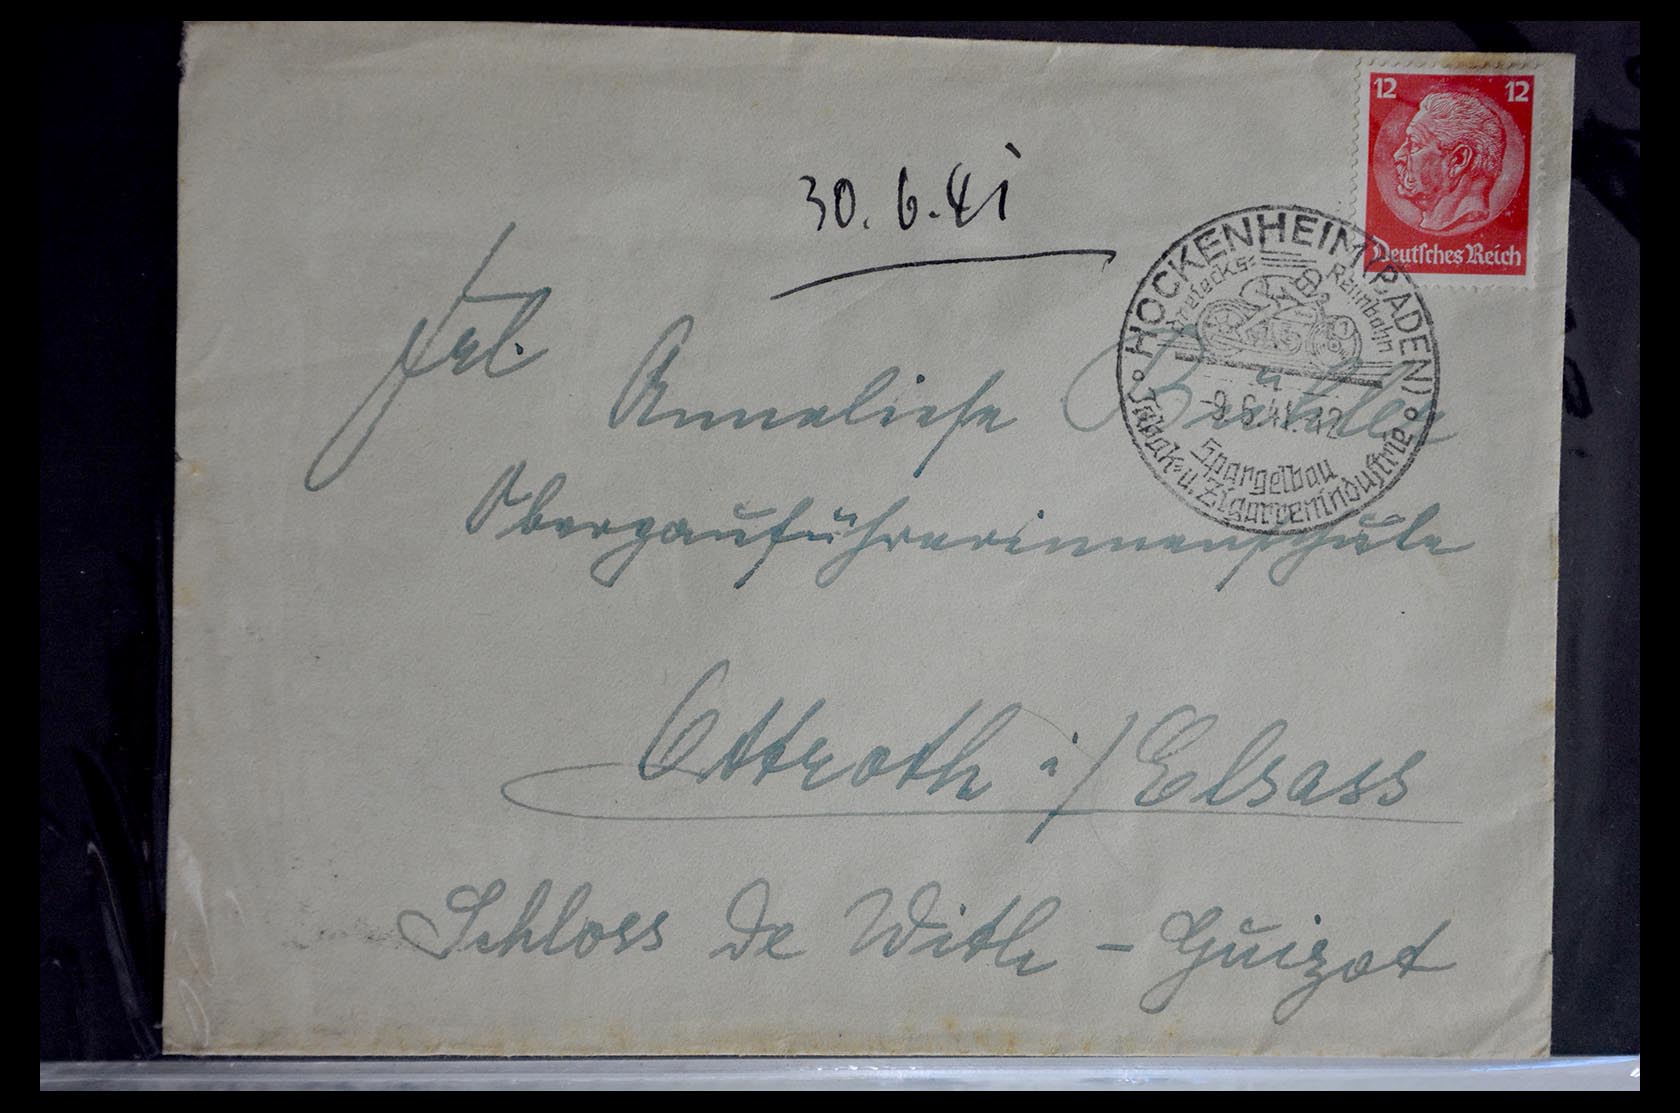 12 12
Deutsches Reich
30.6.41
HOCKENHEIM (BADEN)
Dreiecks- Rennbahn
-9.6.41.12
Spargelbau
Tabak- u. Zigarrenindustrie
Frl.
Anneliese Bühler
Obergauführerinnenschule
Ottroth i/Elsass
Schloss de With - Guizot